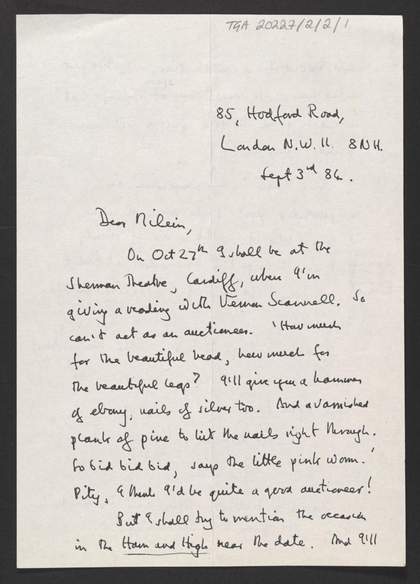 TGA 20227/2/2/1
85, Hodford Road,
London N.W.11. 8NH.
Sept 3rd 86.
Dear Milein,
On Oct 27th I shall be at the
Sherman Theatre, Cardiff, when I'm
giving a reading with Vernon Scannell. So
can't act as an auctioneer. 'How much
for the beautiful head, how much for
the beautiful legs? I'll give you a hammer
of ebony, nails of silver too. And a varnished
plank of pine to hit the nails right through.
So bid bid bid, says the little pink worm.'
Pity, I think I'd be quite a good auctioneer!
But I shall try to mention the occasion
in the Ham and High near the date. And I'll